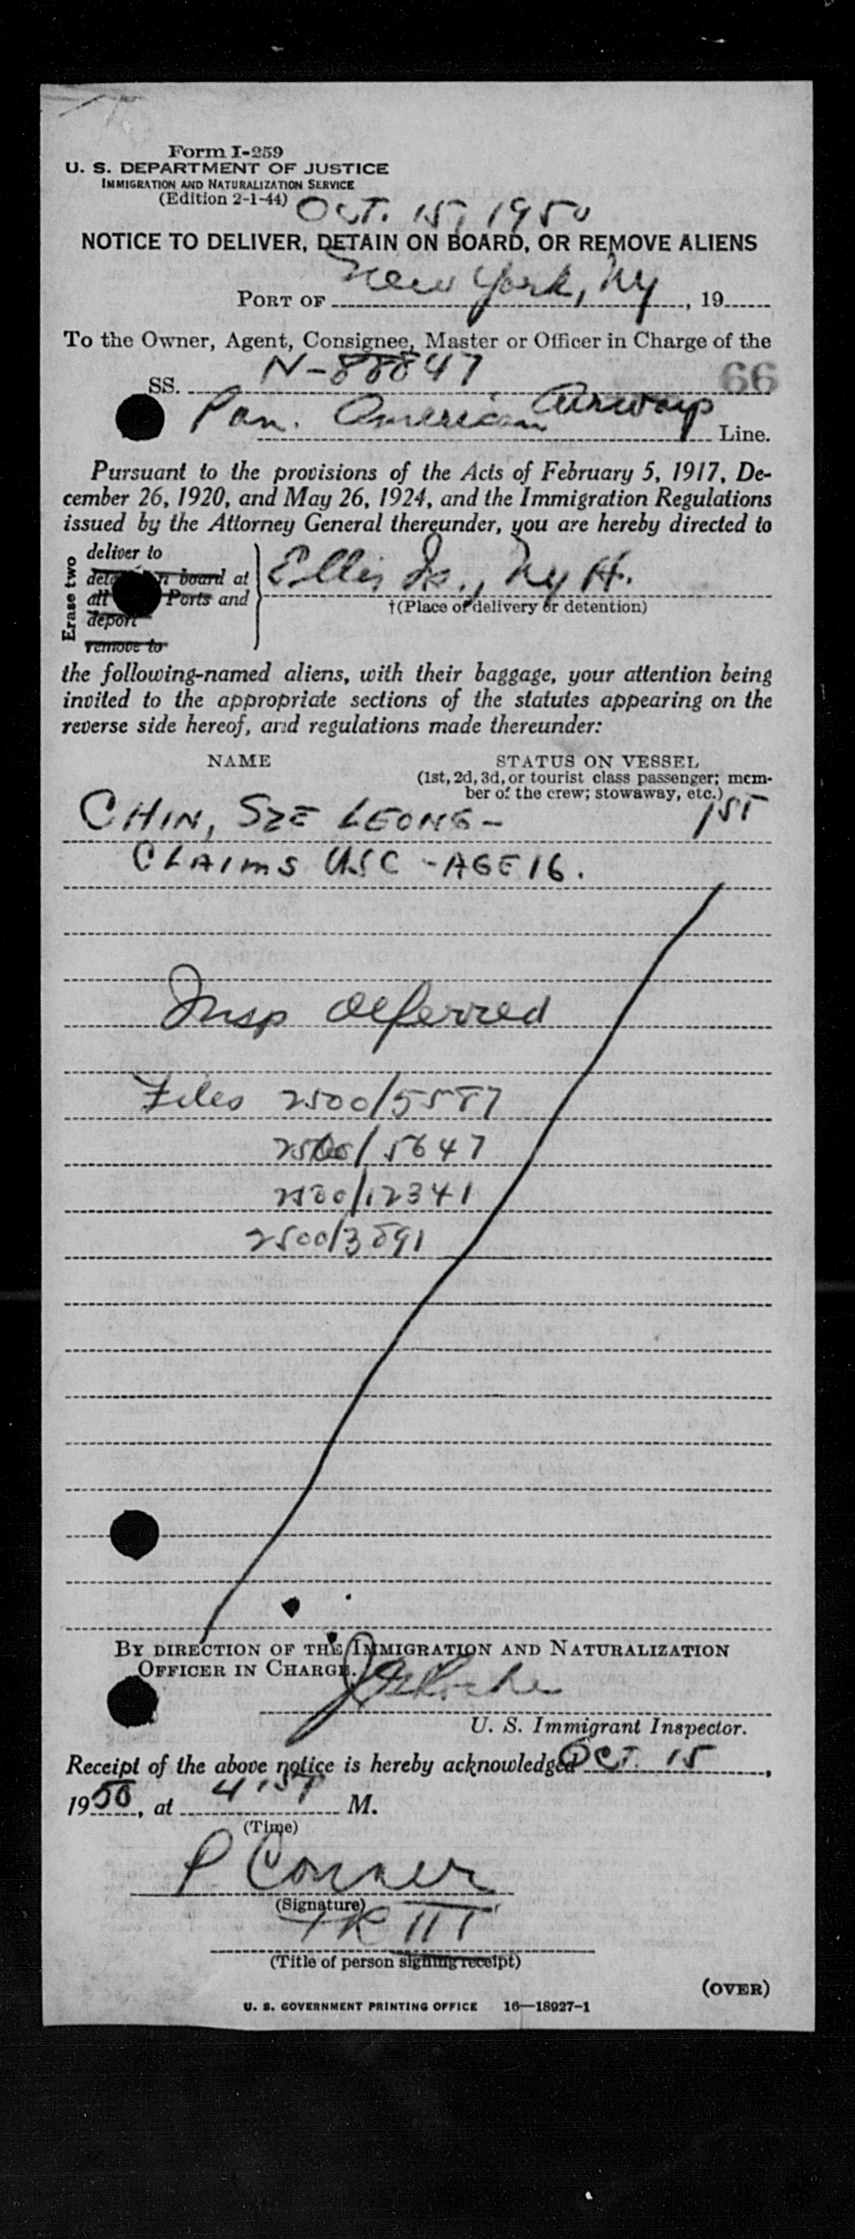 Form I-259
U. S. DEPARTMENT OF JUSTICE
IMMIGRATION AND NATURALIZATION SERVICE
(Edition 2-1-44)
OCT. 15, 1950
NOTICE TO DELIVER, DETAIN ON BOARD, OR REMOVE ALIENS
PORT OF New York, NY, 19
To the Owner, Agent, Consignee, Master or Officer in Charge of the
SS. N-88847
66
Pan. American Airways Line.
Pursuant to the provisions of the Acts of February 5, 1917, De-
cember 26, 1920, and May 26, 1924, and the Immigration Regulations
issued by the Attorney General thereunder, you are hereby directed to
Erase two
deliver to
board at
all Ports and
deport
remove to
Ellis Is., NY H.
†(Place of delivery or detention)
the following-named aliens, with their baggage, your attention being
invited to the appropriate sections of the statutes appearing on the
reverse side hereof, and regulations made thereunder:
NAME STATUS ON VESSEL
(1st, 2d, 3d, or tourist class passenger; mem-
ber of the crew; stowaway, etc.)
CHIN, SZE LEONG - 1ST
CLAIMS USC - AGE 16.
Insp deferred
Files 2500/5587
2500/5647
2500/12341
2500/3891
BY DIRECTION OF THE IMMIGRATION AND NATURALIZATION
OFFICER IN CHARGE.
U. S. Immigrant Inspector.
Receipt of the above notice is hereby acknowledged OCT. 15,
1950, at M.
(Time)
P Conner
(Signature)
(Title of person signing receipt)
(OVER)
U. S. GOVERNMENT PRINTING OFFICE 16—18927-1